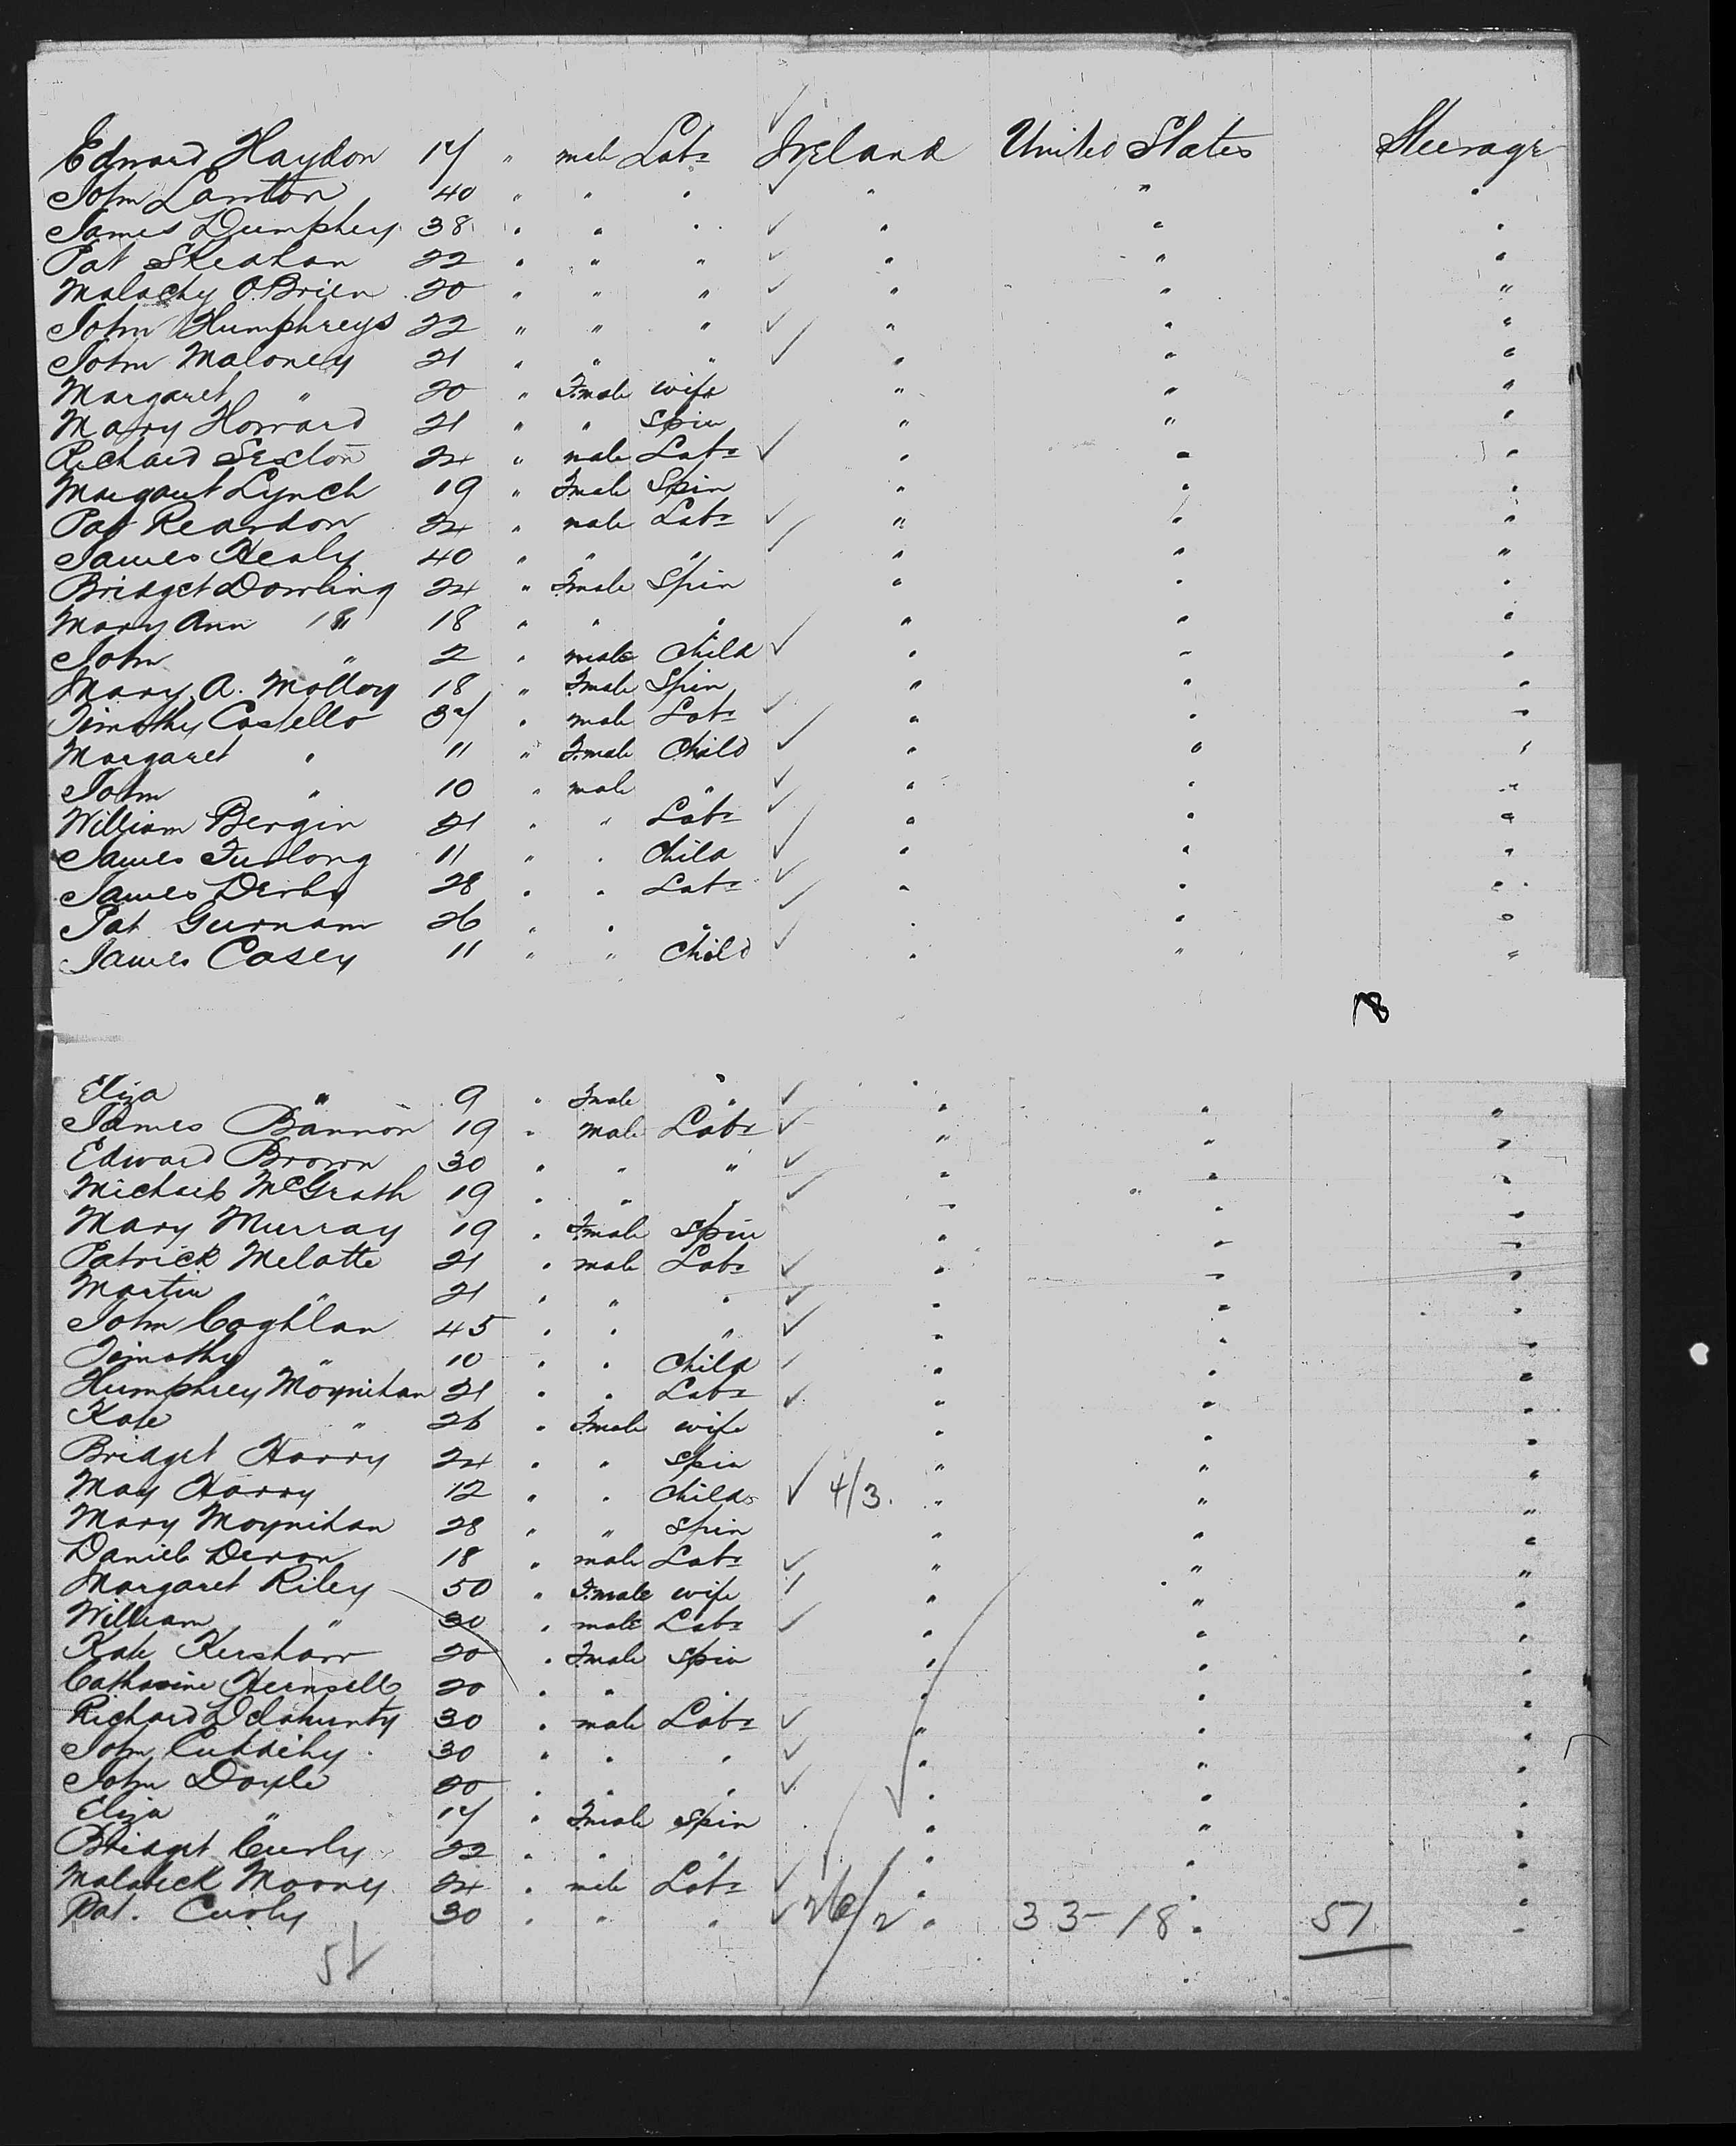 Edward Haydon 17 " male Labr Ireland United States Steerage
John Lawton 40 " " " " " "
James Dumphey 38 " " " " " "
Pat Skeahan 22 " " " " " "
Malachy O.Brien 20 " " " " " "
John Humphreys 22 " " " " " "
John Maloney 21 " " " " " "
Margaret " 20 " Female wife " " "
Mary Howard 21 " " Spin " " "
Richard Sexton 24 " male Labr " " "
Margaret Lynch 19 " Female Spin " " "
Pat Reardon 24 " male Labr " " "
James Healy 40 " " " " " "
Bridget Dowling 24 " Female Spin " " "
Mary Ann " 18 " " " " " "
John " 2 " male Child " " "
Mary A. Molloy 18 " Female Spin " " "
Timothy Costello 37 " male Labr " " "
Margaret " 11 " Female Child " " "
John " 10 " male " " " "
William Bergin 21 " " Labr " " "
James Furlong 11 " " Child " " "
James Derby 28 " " Labr " " "
Pat Gurnam 26 " " " " " "
James Casey 11 " " Child " " "
18
Eliza " 9 " Female " " " "
James Bannon 19 " male Labr " " "
Edward Brown 30 " " " " " "
Michael McGrath 19 " " " " " "
Mary Murray 19 " Female Spin " " "
Patrick Melatte 21 " male Labr " " "
Martin " 21 " " " " " "
John Coghlan 45 " " " " " "
Timothy " 10 " " Child " " "
Humphrey Moynihan 21 " " Labr " " "
Kate " 26 " Female wife " " "
Bridget Harry 24 " " Spin " " "
May Harry 12 " " Child 4/3. " " "
Mary Moynihan 28 " " Spin " " "
Daniel Devon 18 " male Labr " " "
Margaret Riley 50 " Female wife " " "
William " 30 " male Labr " " "
Kate Kershaw 20 " Female Spin " " "
Catharine 20 " " " " " "
Richard Delahunty 30 " male Labr " " "
John Cuddihy 30 " " " " " "
John Doyle 20 " " " " " "
Eliza " 17 " Female Spin " " "
Bridget Curly 22 " " " " " "
Malabick Mooney 24 " male Labr " " "
Pat. Curly 30 " " " 26/2 " 33-18 " 51 "
51